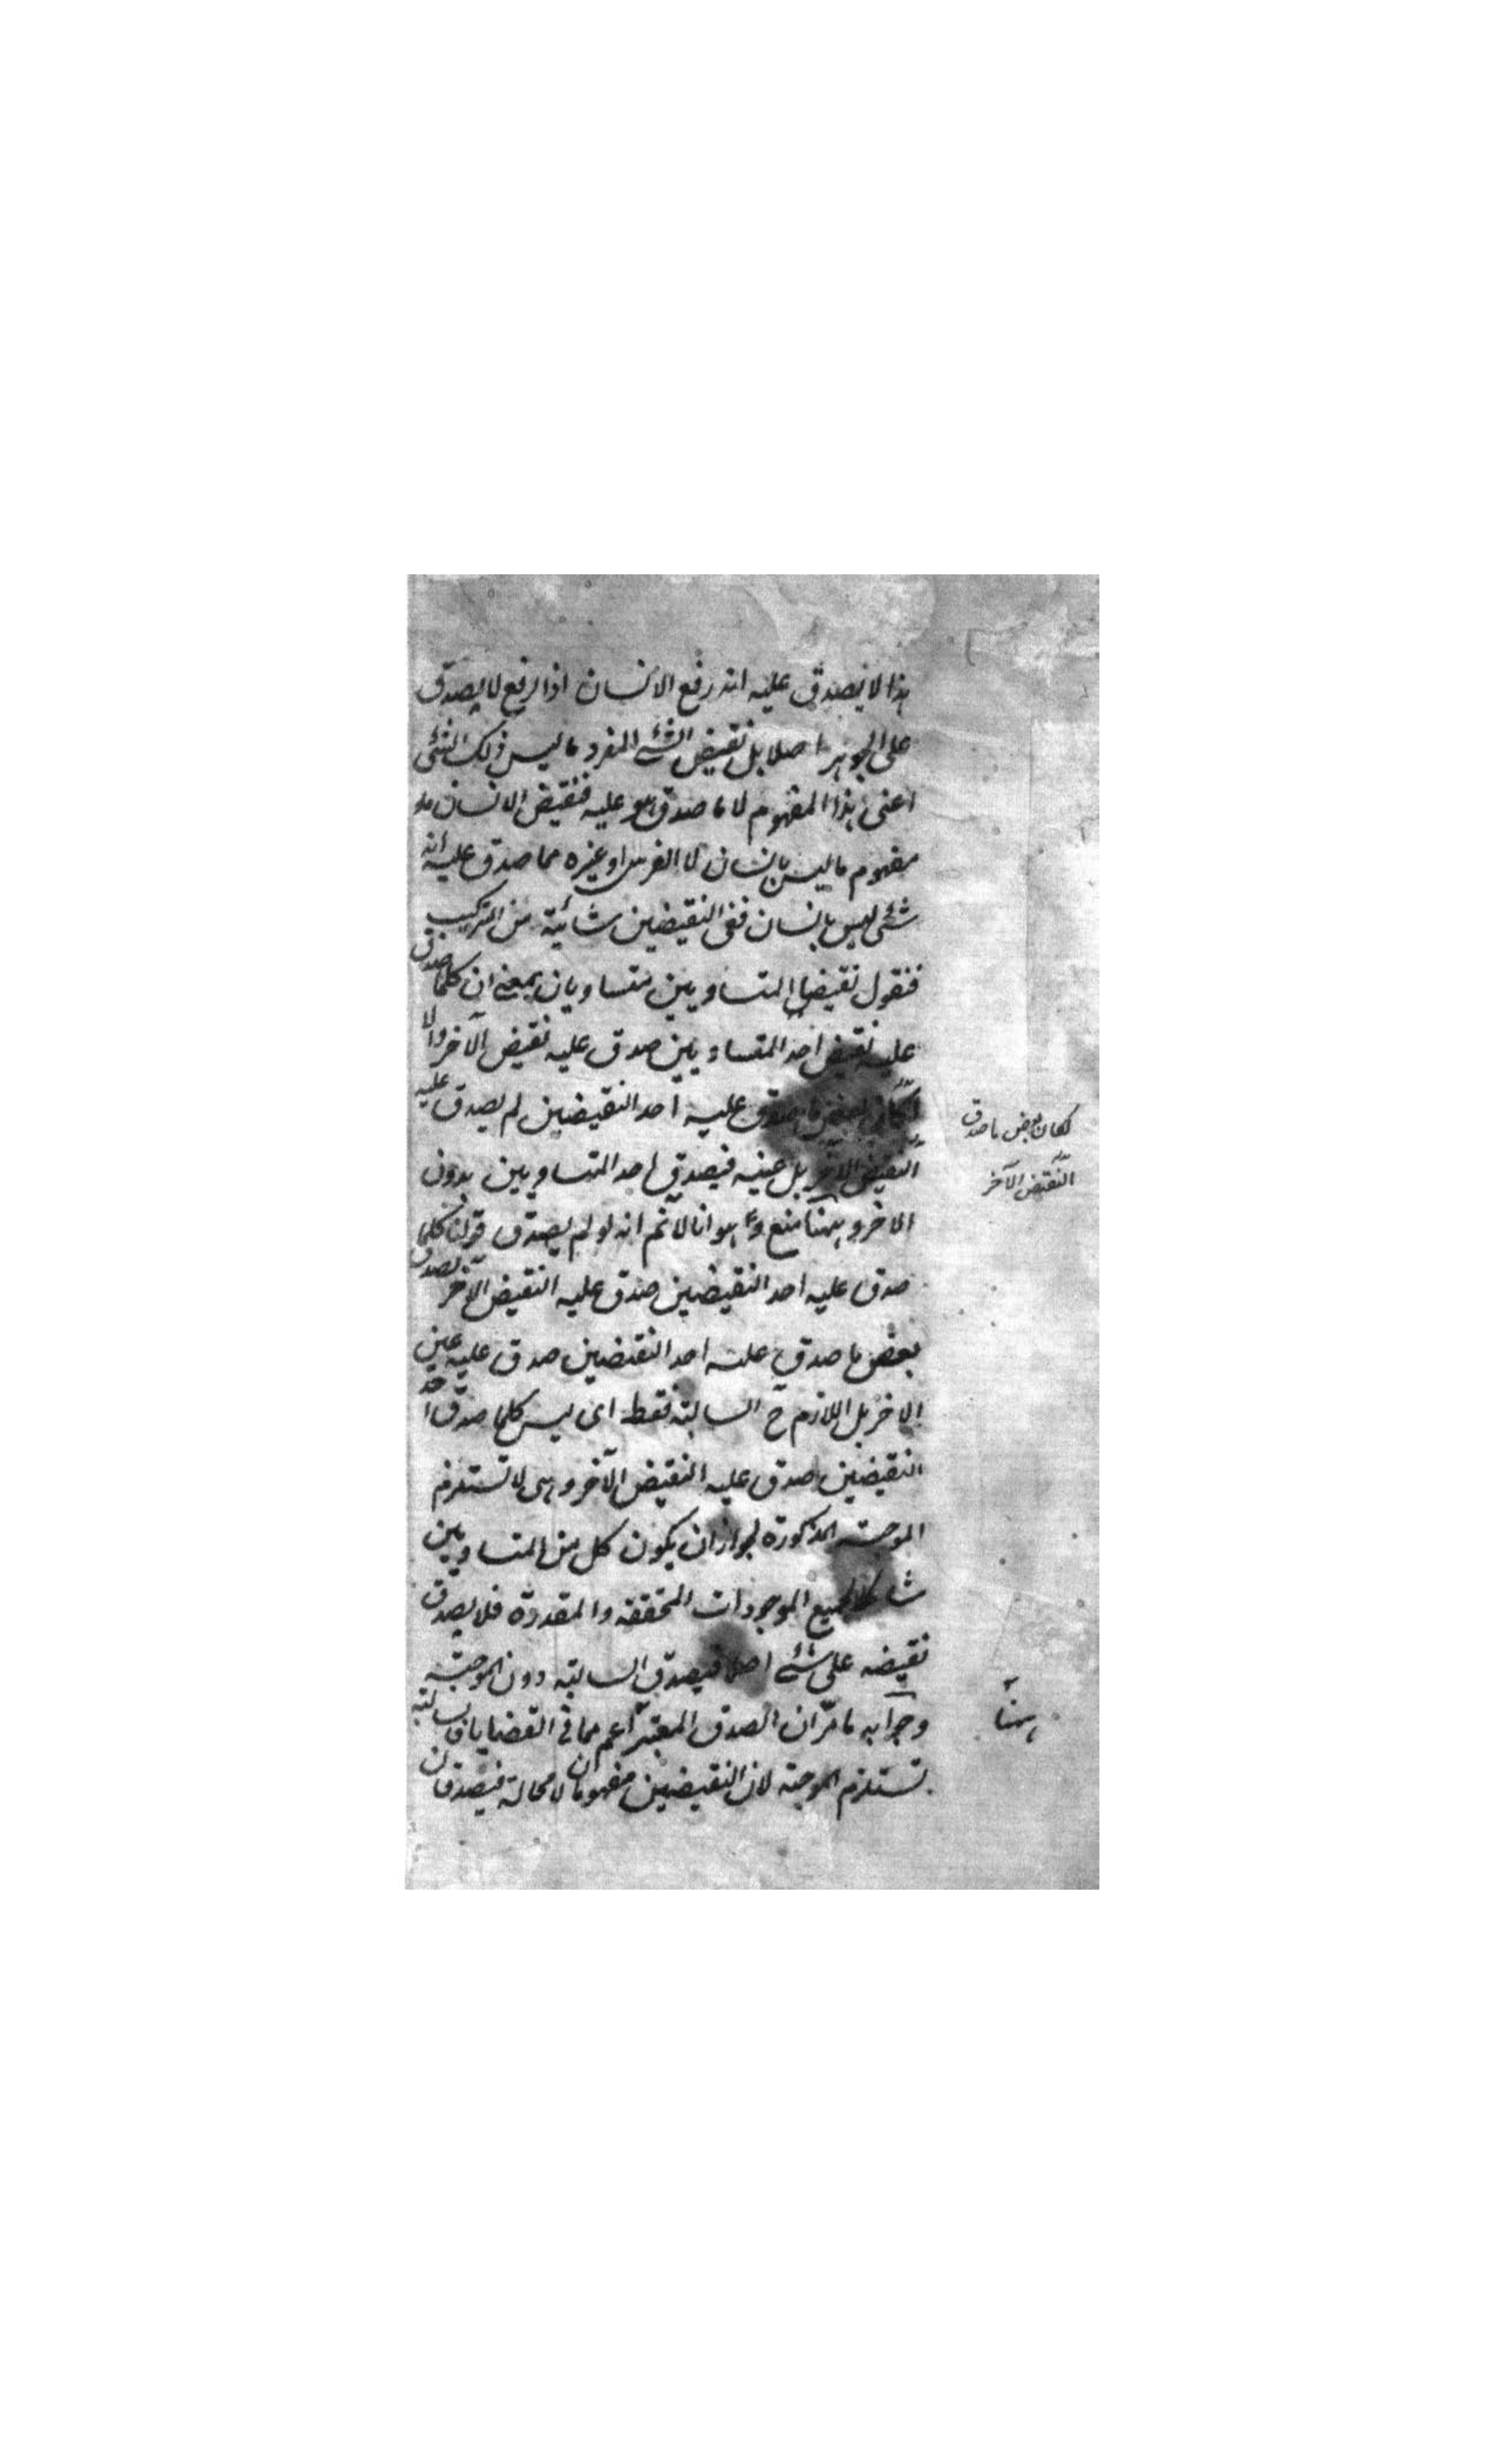 هذا لا يصدق عليه انه رفع الانسان اذ الرفع لا يصدق
على الجوهر اصلا بل نقيض الشئ المفرد ما ليس ذلك الشئ
اعنى هذا المفهوم لا ما صدق هو عليه فنقيض الانسان هو
مفهوم ما ليس بانسان لا الفرس او غيره مما صدق عليه انه
شئ ليس بانسان ففى النقيضين شائبة من التركيب
فنقول نقيضا المتساويين متساويان بمعنى ان كلما صدق
عليه نقيض احد المتساويين صدق عليه نقيض الآخر والا
لكان بعض ما صدق عليه احد النقيضين لم يصدق عليه
النقيض الآخر بل عينه فيصدق احد المتساويين بدون
الاخر وههنا منع وهو انا لانم انه لو لم يصدق قولنا كلما
صدق عليه احد النقيضين صدق عليه النقيض الآخر لصدق
بعض ما صدق عليه احد النقيضين صدق عليه عين
الاخر بل اللازم ح السالبة فقط اى ليس كلما صدق احد
النقيضين صدق عليه النقيض الآخر وهى لا تستلزم
الموجبة المذكورة لجواز ان يكون كل من المتساويين
شاملا لجميع الموجودات المحققه والمقدرة فلا يصدق
نقيضه على شئ اصلا فيصدق السالبة دون الموجبة
وجوابه ما مر ان الصدق المعتبر اعم مما فى القضايا فالسالبة
تستلزم الموجبة لان النقيضين مفهومان لا محالة فيصدقان
لكان بعض ما صدق
النقيض الآخر
ههنا